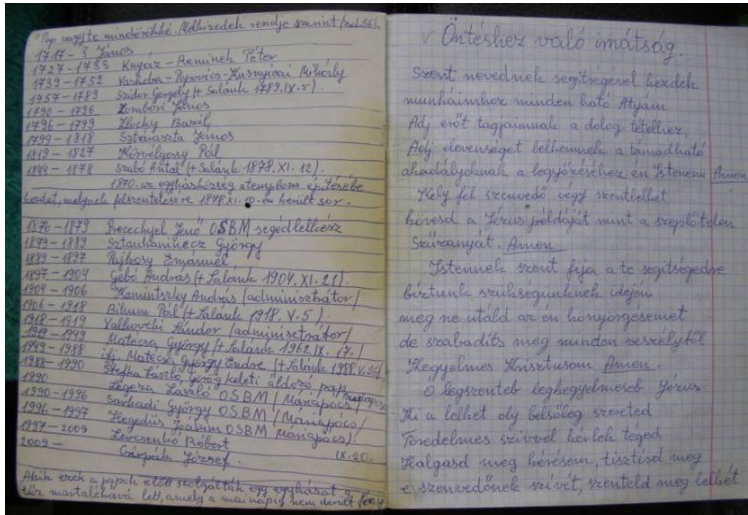 "Pap vagy te mindörökké Melkizedek rendje szerint
1717 - ? János
1727 - 1733 Knyáz - Péter
1739 - 1752 Mihály
1757 - 1789 Szidor Gergely (+ Salánk 1789. IX. 5).
1790 - 1796 Zombori János
1796 - 1799 Bazil
1799 - 1818 János
1819 - 1827 Pál
1844 - 1878 Szabó Antal (+ Salánk 1878. XI. 12).
1870. az egyházközség a templom építésébe
kezdett, melynek felszentelésére 1878. XI. -én került sor.
1876 - 1879 Jenő OSBM segédlelkész
1879 - 1889 György
1889 - 1897 Emánuel
1897 - 1904 Gebé András (+ Salánk 1904. XI. 21).
1904 - 1906 Kaminszky András (adminisztrátor/
1906 - 1918 Pál (+ Salánk 1918. V. 5).
1918 - 1919 Sándor (adminisztrátor/
1919 - 1949 Matecsa György (+ Salánk 1962. IX. 17.)
1949 - 1988 ifj. Matecsa György Endre (+ Salánk 1988. V.
1988 - 1990 László görög keleti áldozó pap
1990 Legeza László OSBM (Máriapócs/
1990 - 1996 Sárkadi György OSBM (Máriapócs/
1996 - 1997 Hegedűs Joákim OSBM (Máriapócs).
1997 - 2009 Levcsenkó Róbert
2009 - József. IX. 20.
Akik ezek a papok előtt szolgálták egy egyházát a
tűz martalékává lett, amely a mai napig nem derült fény
√ Öntéshez való imátság.
Szent nevednek segítségével kezdek
munkáimhoz minden ható Atyám
Adj erőt tagjaimnak a dolog tételhez,
Adj elevenséget lelkemnek a támadható
akadályoknak a legyőzéséhez én Istenem Amen
Kely fel szenvedő végy szentlelket
kövesd a Jézus példáját mint a szeplőtelen
Szűzanyát. Amen
Istennek szent fija a te segítségedre
bíztunk szükségünknek idején
meg ne utáld az én könyörgésemet
de szabadíts meg minden veszélytől
Kegyelmes Krisztusom Amen.
Ó legszenteb legkegyelmeseb Jézus
Ki a lelket oly belsőleg szereted
Töredelmes szívvel kérlek téged
Halgasd meg kérésem, tisztísd meg
e szenvedőnek szívét, szenteld meg lelkét